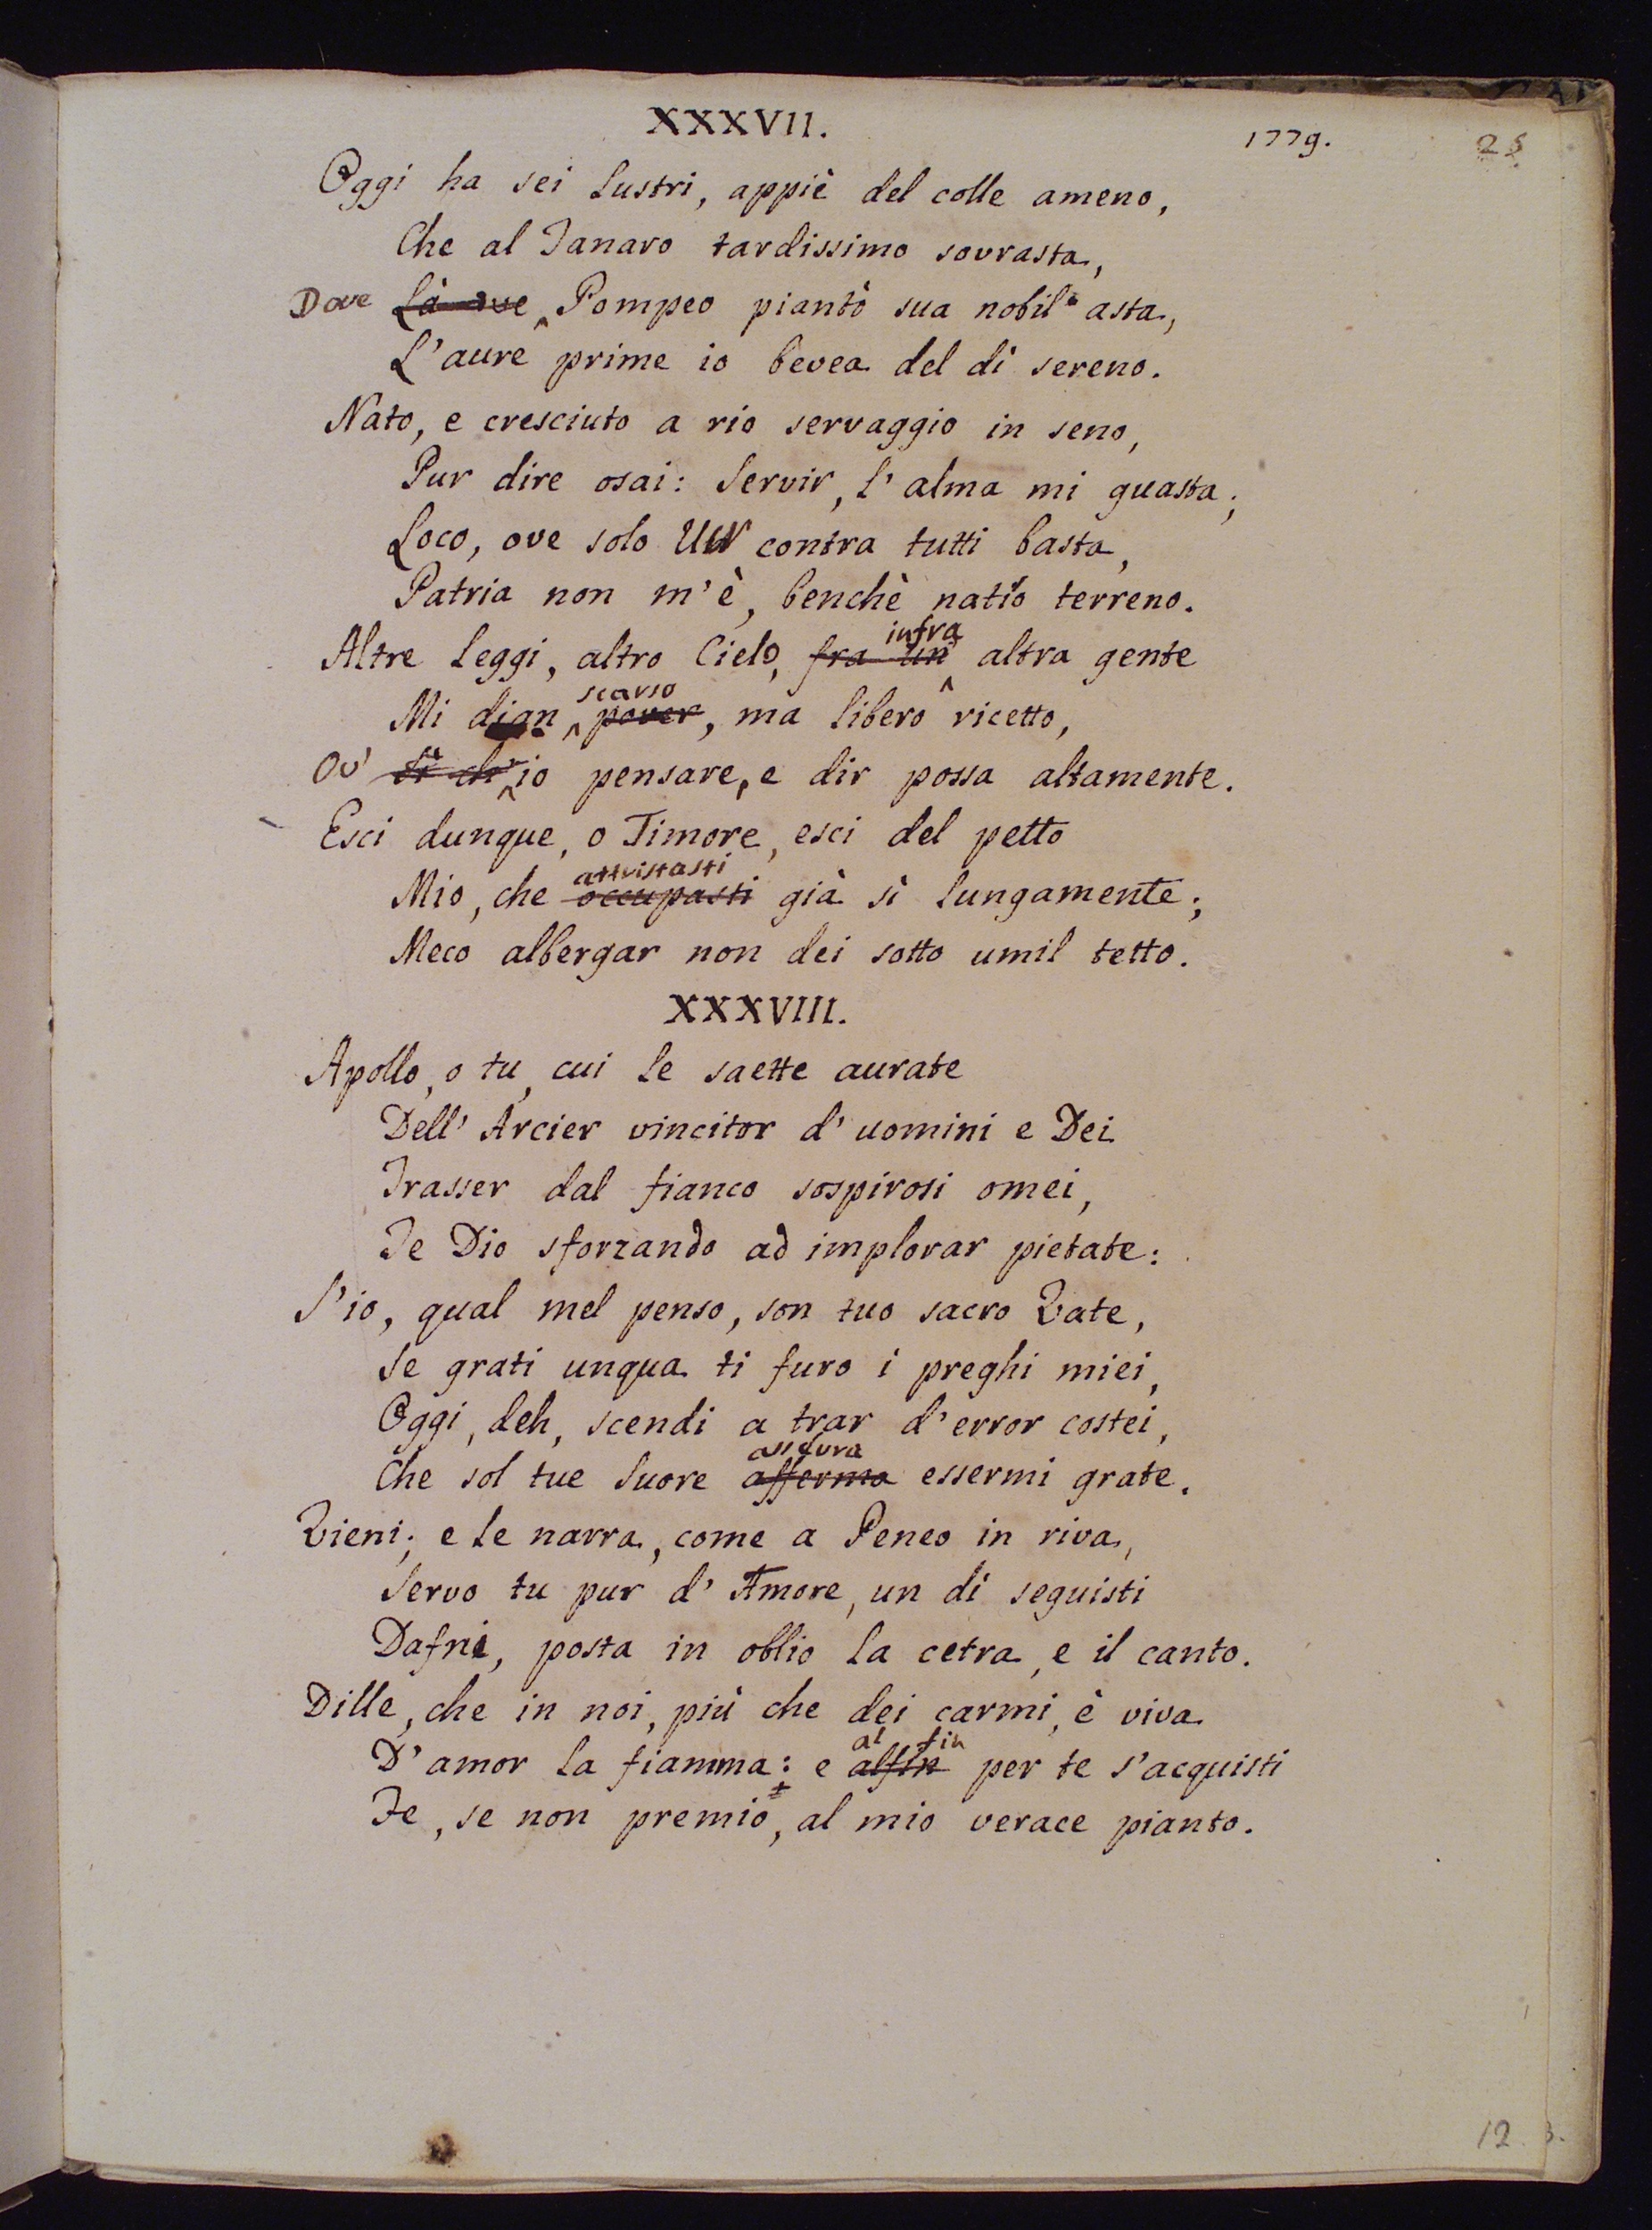 XXXVII.
1779.
25
Oggi ha sei lustri, appiè del colle ameno,
Che al Tanaro tardissimo sovrasta,
Dove Là ove Pompeo piantò sua nobil asta,
L'aure prime io bevea del dì sereno.
Nato, e cresciuto a rio servaggio in seno,
Pur dire osai: Servir, l'alma mi guasta;
Loco, ove solo UN contra tutti basta,
Patria non m'è, benchè natìo terreno.
infra
Altre leggi, altro Cielo, fra un altra gente
scarso
Mi dian pover, ma libero ricetto,
Ov' sì ch' io pensare, e dir possa altamente.
Esci dunque, o Timore, esci del petto
attristasti
Mio, che occupasti già sì lungamente;
Meco albergar non dei sotto umil tetto.
XXXVIII.
Apollo, o tu, cui le saette aurate
Dell' Arcier vincitor d' uomini e Dei
Trasser dal fianco sospirosi omei,
Te Dio sforzando ad implorar pietate:
S'io, qual mel penso, son tuo sacro Vate,
Se grati unqua ti furo i preghi miei,
Oggi, deh, scendi a trar d'error costei,
assevra
Che sol tue Suore afferma essermi grate.
Vieni; e le narra, come a Peneo in riva,
Servo tu pur d' Amore, un dì seguisti
Dafni, posta in oblio la cetra, e il canto.
Dille, che in noi, più che dei carmi, è viva
al fin
D'amor la fiamma: e alfin per te s'acquisti
Fe, se non premio, al mio verace pianto.
12. 3.